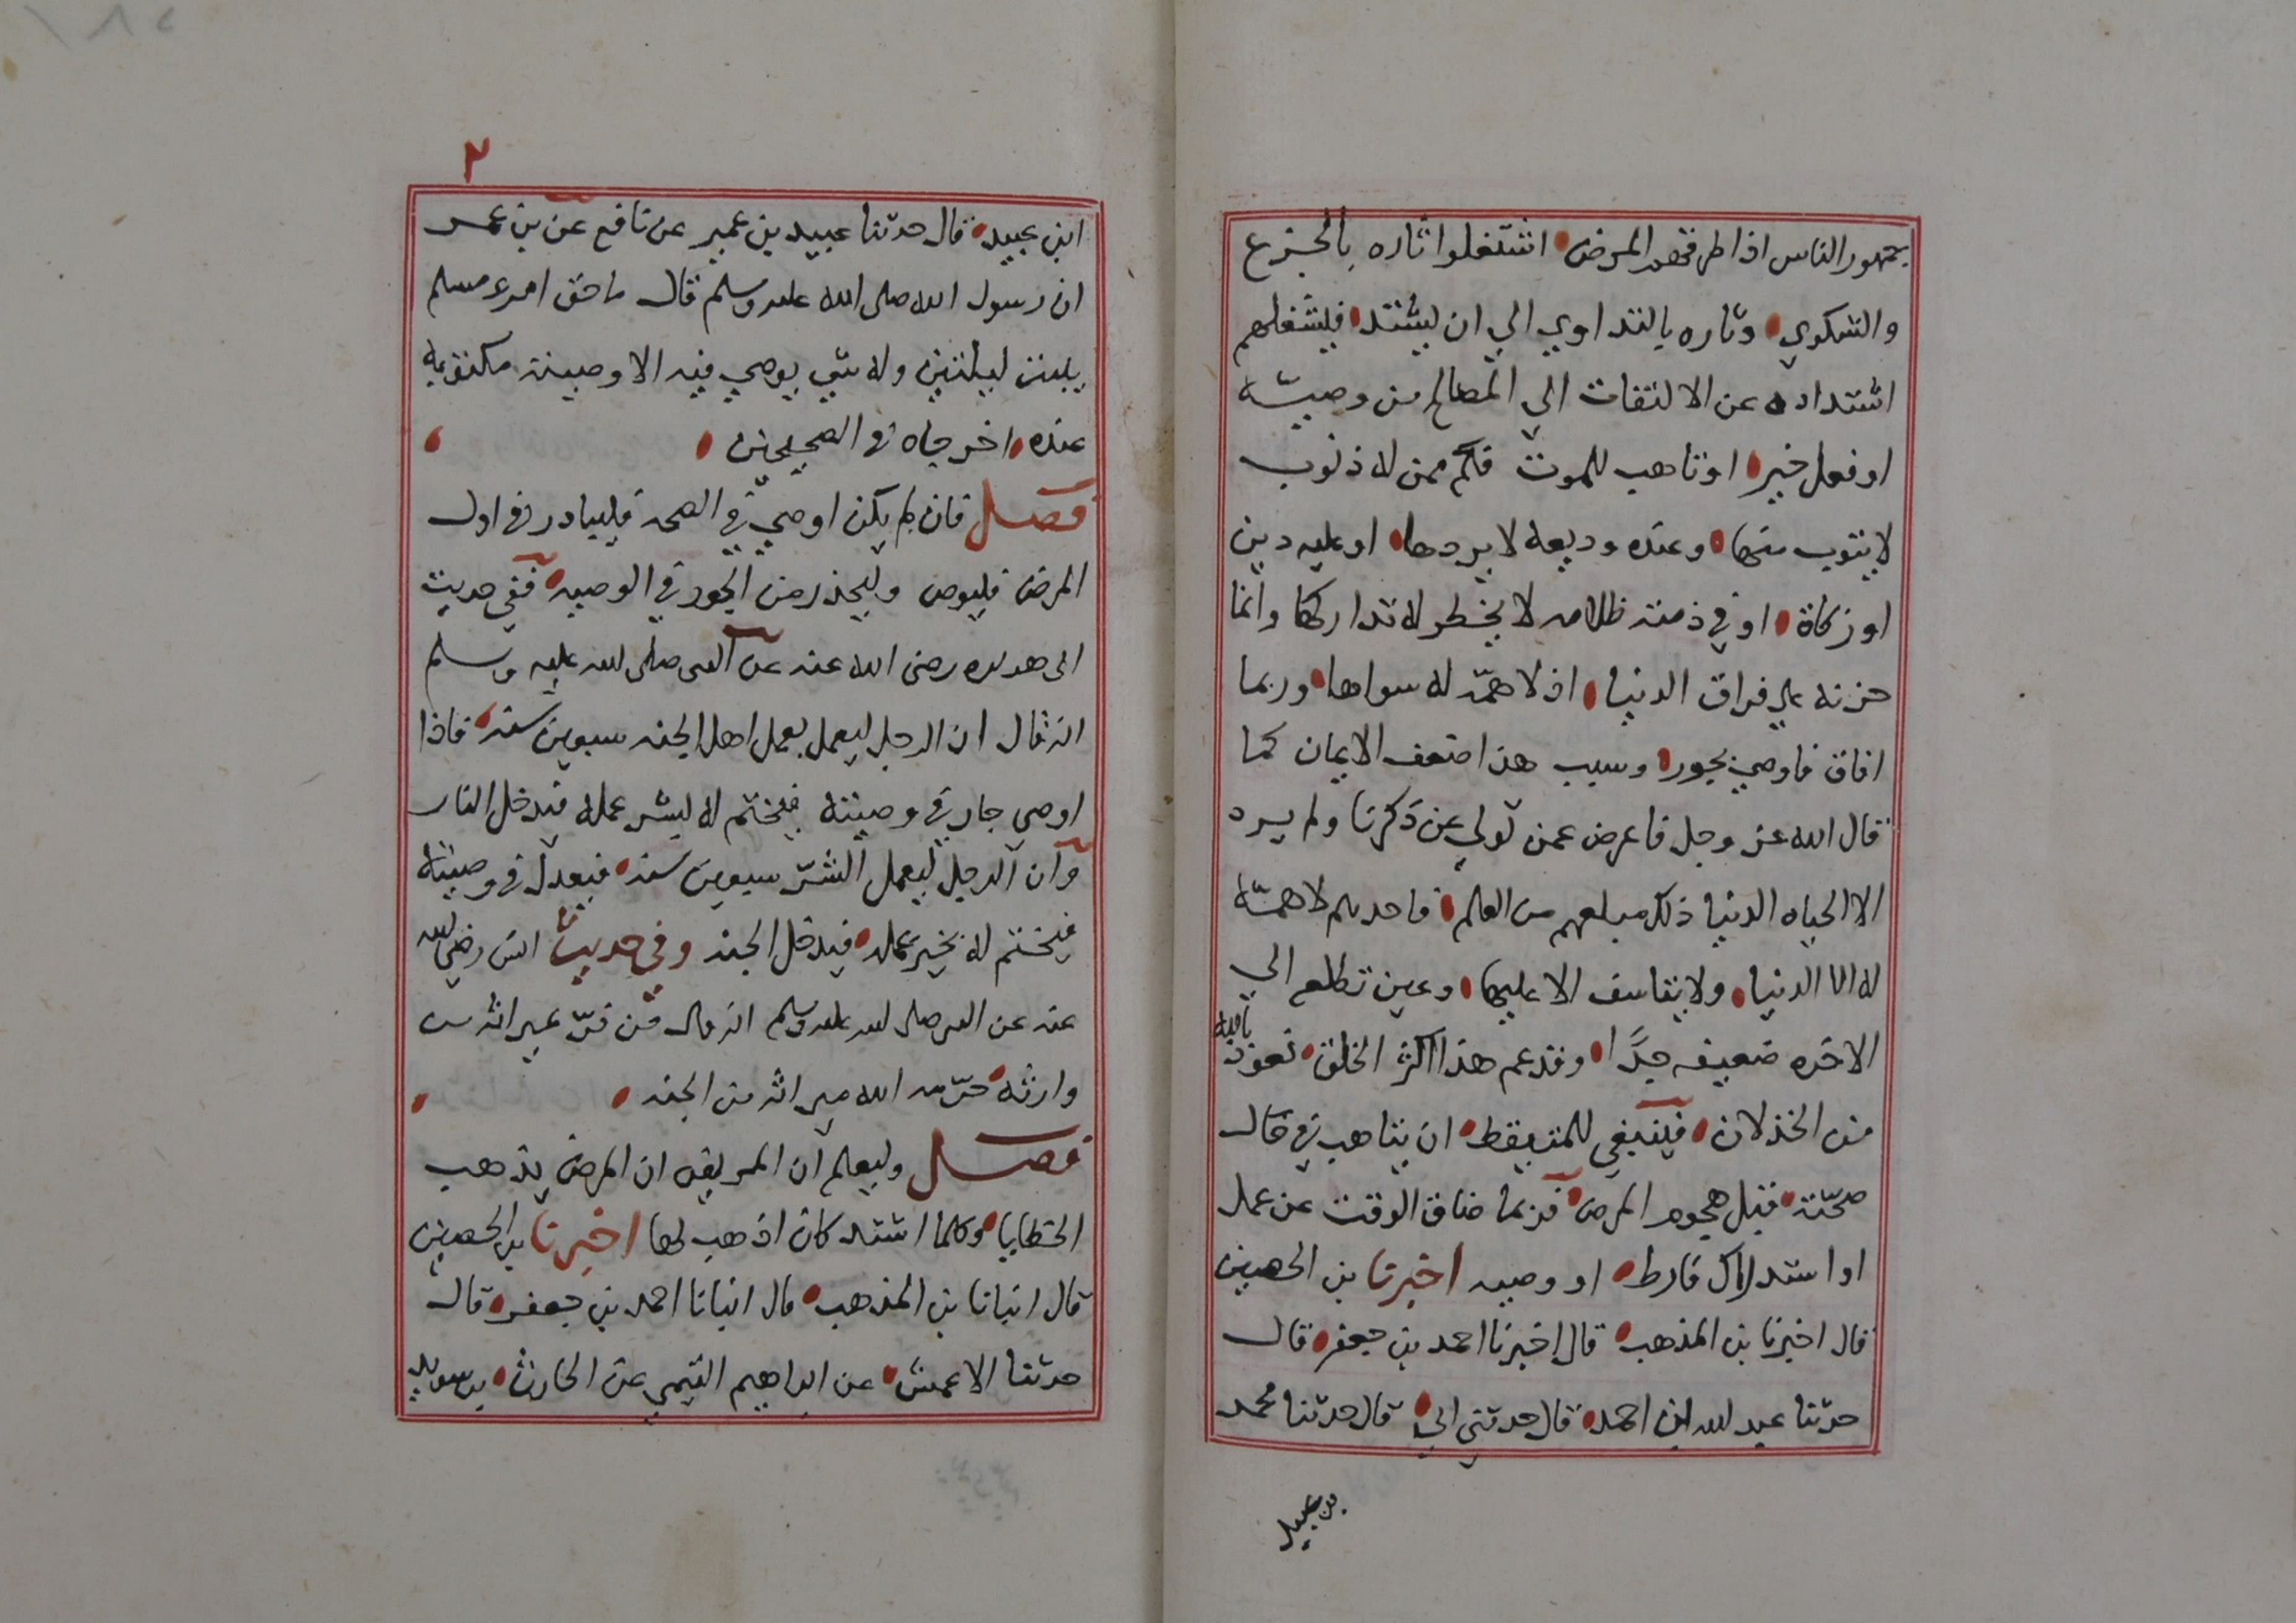 جمهور الناس اذا طرقهم المرض اشتغلوا تاره بالجزع
والشكوي وتاره بالتداوي الي ان يشتد فيشغلهم
اشتداده عن الالتفات الي المصالح من وصيته
او فعل خير او تاهب للموت فكم ممن له ذنوب
لا يتوب منها وعنده وديعه لا يردها او عليه دين
او زكاة او في ذمته ظلامه لا يخطر له تداركها وانما
حزنه علي فراق الدنيا اذ لا همّه له سواها وربما
افاق فاوصي بجور وسبب هذا ضعف الايمان كما
قال الله عز وجل فاعرض عمن تولي عن ذكرنا ولم يرد
الا الحياه الدنيا ذلك مبلغهم من العلم فاحدهم لا همّة
له الا الدنيا ولا يتاسف الا عليها وعين تطلع الي
الاخره ضعيفه جدًّا وقد عم هذا اكثر الخلق نعوذ بالله
من الخذلان فينبغي للمتيقظ ان يتاهب في حال
صحّته قبل هجوم المرض فربما ضاق الوقت عن عمل
او استدراك فارط او وصيه اخبرنا بن الحصين
قال اخبرنا بن المذهب قال اخبرنا احمد بن جعفر قال
حدثنا عبد الله ابن احمد قال حدثني ابي قال حدثنا محمد
بن عبيد
٢
ابن عبيد قال حدثنا عبيد بن عمير عن نافع عن بن عمر
ان رسول الله صلى الله عليه وسلم قال ما حق امرء مسلم
يبيت ليلتين وله شي يوصي فيه الا وصيته مكتوبه
عنده اخرجاه في الصحيحين
فصل فان لم يكن اوصي في الصحه فليبادر في اول
المرض فليوص وليحذر من الجور في الوصيه ففي حديث
ابى هريره رضى الله عنه عن النبى صلى الله عليه وسلم
انه قال ان الرجل ليعمل بعمل اهل الجنه سبعين سنه فاذا
اوصى جار في وصيته فيختم له بشر عمله فيدخل النار
وان الرجل ليعمل الشرّ سبعين سنه فيعدل في وصيته
فيختم له بخير عمله فيدخل الجنه وفي حديث انس رضي الله
عنه عن النبى صلى الله عليه وسلم انه قال من فرّ عن ميراثه من
وارثه حرّمه الله ميراثه من الجنه
فصل وليعلم ان المريض ان المرض يذهب
الخطايا وكلما اشتد كان اذهب لها اخبرنا بن الحصين
قال انبانا بن المذهب قال انبانا احمد بن جعفر قال
حدثنا الاعمش عن ابراهيم التيمي عن الحارث بن سويد